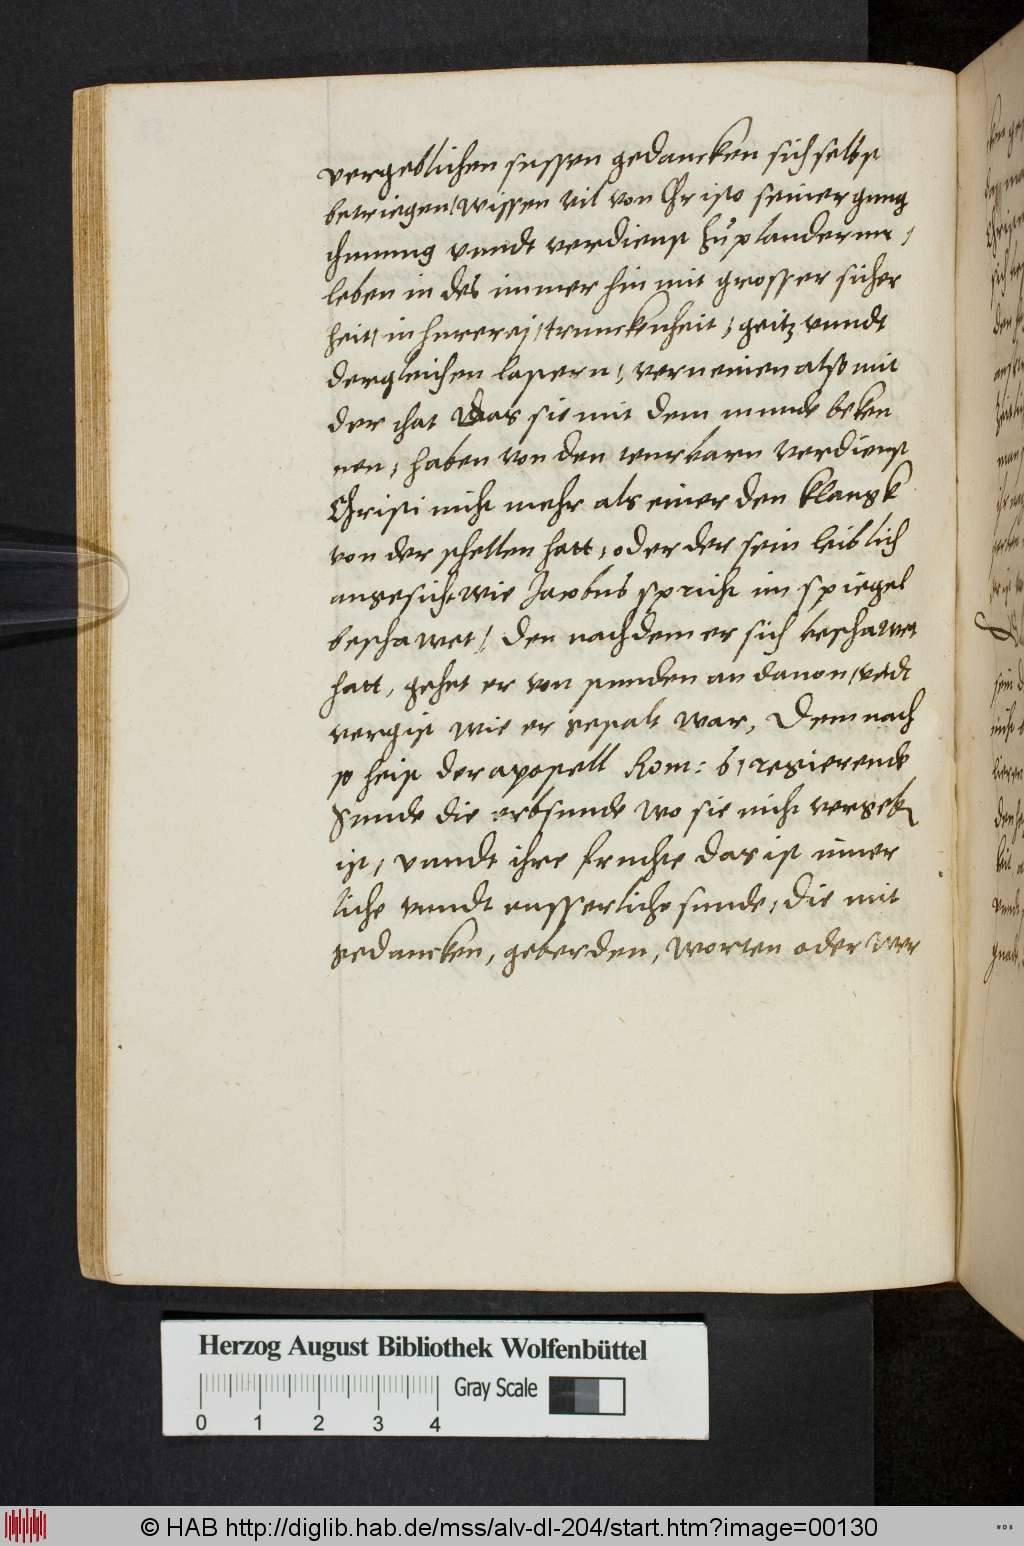 vergeblichen sussen gedancken sich selbst
betriegen, wissen vil von Christo seiner gnug
thuuung vnndt verdienst zu plandernn,
leben in des immer hin mit grosser sicher
heit, in hurerej, trunckenheit, geitz vnndt
dergleichen lastern, verneinen also mit
der that Was sie mit dem munde beken
nen, haben von den teurbarn verdienst
Christi nicht mehr als einer den klangk
von der schellen hatt, oder der sein leiblich
angesicht wie Jacobus spricht im spiegel
beschawet, den nachdem er sich beschawet
hatt, gehet er von stunden an dauon, vndt
vergist wie er gestalt war, Demnach
so heist der apostell Rom: 6, regierende
Sunde die erbsunde wo sie nicht vergebn
ist, vnndt ihre fruchte das ist inner
liche vnndt eusserliche sunde, die mit
gedancken, geberden, worten oder wer
Herzog August Bibliothek Wolfenbüttel
Gray Scale
0 1 2 3 4
© HAB http://diglib.hab.de/mss/alv-dl-204/start.htm?image=00130